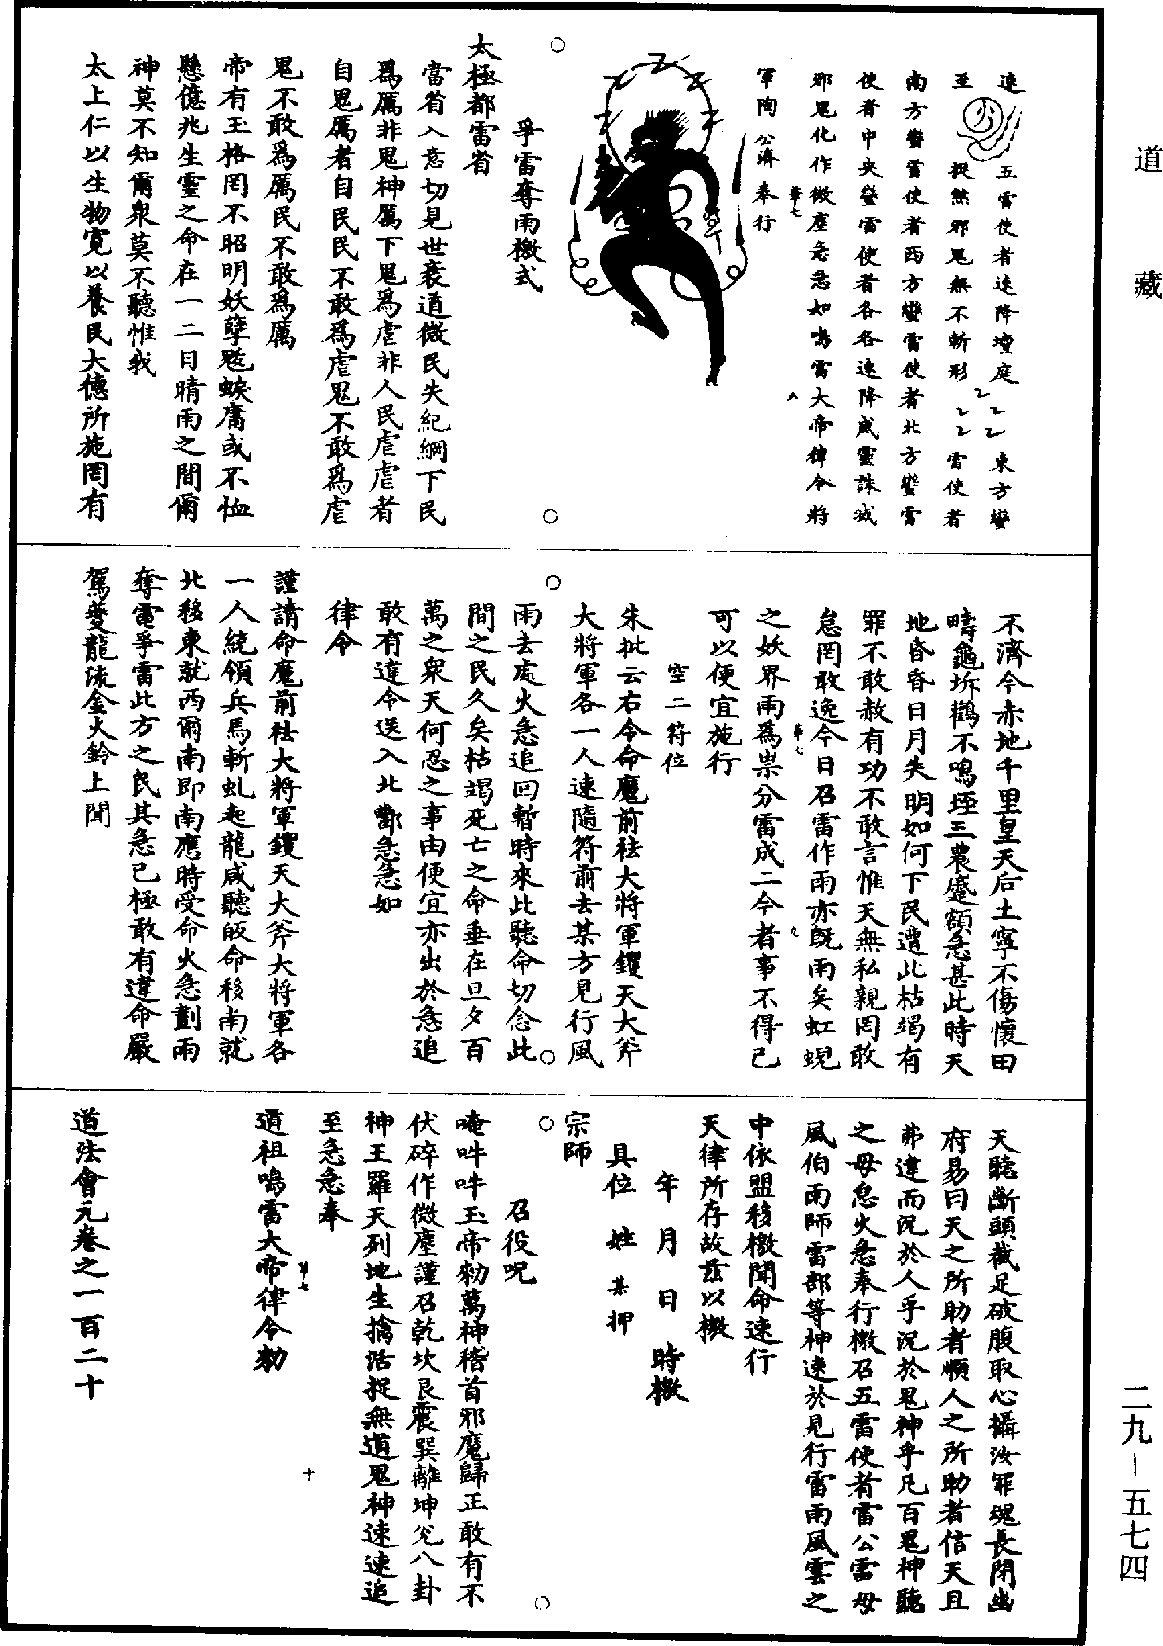 道藏
速
五雷使者速降壇庭
東方蠻
至
捉無邪鬼無不斬形
雷使者
南方蠻雷使者西方蠻雷使者北方蠻雷
使者中央蠻雷使者各各速降威靈誅滅
邪鬼化作微塵急急如鳴雷大帝律令將
軍陶公濟奉行
孚雷奪雨檄式
太極都雷省
當省入意切見世衰道微民失紀綱下民
爲厲非鬼神厲下鬼爲虐非人民虐虐者
自鬼厲者自民民不敢爲虐鬼不敢爲虐
鬼不敢爲厲民不敢爲厲
帝有玉格罔不昭明妖孽魃蜧庸或不恤
懸億兆生靈之命在一二日晴雨之間爾
神莫不知爾衆莫不聽惟我
太上仁以生物寬以養民大德所施罔有
不濟今赤地千里皇天后土寧不傷懷田
疇龜坼鸛不鳴垤三農蹙額急甚此時天
地昏昏日月失明如何下民遭此枯竭有
罪不敢赦有功不敢言惟天無私親罔敢
怠罔敢逸今日召雷作雨亦既雨矣虹蜺
之妖界雨爲祟分雷成二今者事不得已
可以便宜施行
空二符位
朱批云右令命魔前祛大將軍钁天大斧
大將軍各一人速隨符前去某方見行風
雨去處火急追回暫時來此聽命切念此
間之民久矣枯竭死亡之命垂在旦夕百
萬之衆天何忍之事由便宜亦出於急追
敢有違令送入北酆急急如
律令
謹請命魔前祛大將軍钁天大斧大將軍各
一人統領兵馬斬虬起龍咸聽皈命移南就
北移東就西爾南即南應時受命火急劃雨
奪電孚雷此方之民其急已極敢有違命嚴
駕夔龍流金火鈴上聞
天聽斷頭截足破腹取心攝汝罪魂長閉幽
府易曰天之所助者順人之所助者信天且
弗違而況於人乎況於鬼神乎凡百鬼神聽
之毋怠火急奉行檄召五雷使者雷公雷母
風伯雨師雷部等神速於見行雷雨風雲之
中依盟移檄聞命速行
天律所存故茲以檄
年月日時檄
具位姓某押
宗師
召役呪
唵吽吽玉帝勑萬神稽首邪魔歸正敢有不
伏碎作微塵謹召乾坎艮震巽離坤兌八卦
神王羅天列地生擒活捉無道鬼神速速追
至急急奉
道祖鳴雷大帝律令勑
道法會元卷之一百二十
二九－五七四